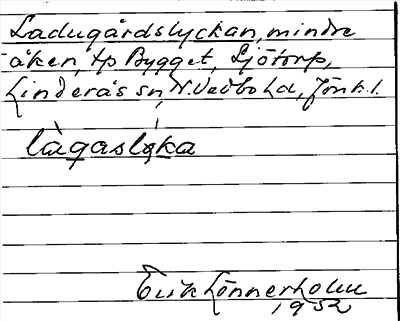 Ladugårdslyckan, mindre
åker, tp Bygget, Sjötorp,
Linderås sn, N. Vedbo hd, Jönk. l.
làgaslýka
Erik Lönnerholm
1952